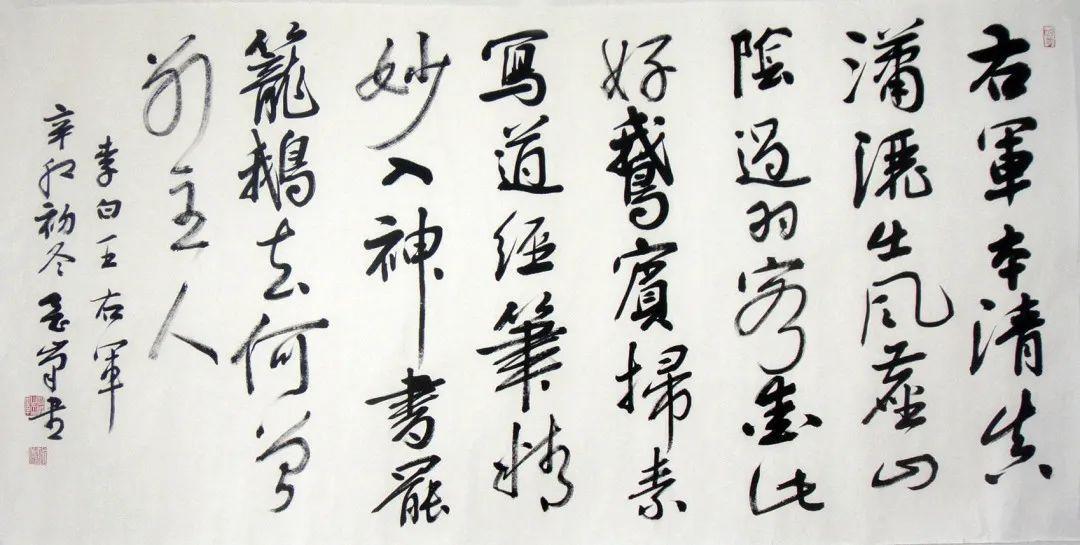 右軍本清真
瀟灑出風塵山
陰過羽客愛此
好鵞賓掃素
寫道經筆精
妙入神書罷
籠鵝去何曾
別主人
李白王右軍
辛卯初冬书